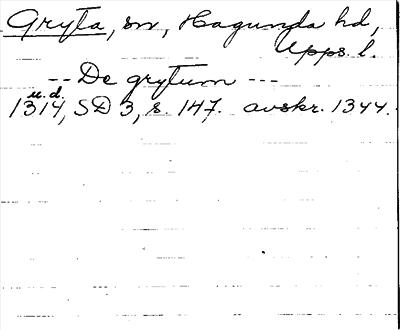 Gryta, sn, Hagunda hd,
Upps. l.
-- De grytum ---
u. d.
1314, SD 3, s. 147. avskr. 1344.